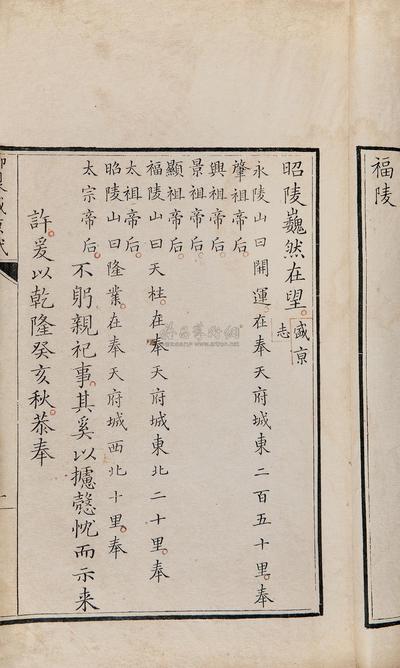 福陵
昭陵巍然在望。盛京
志
永陵山曰開運。在奉天府城東二百五十里。奉
肇祖帝后。
興祖帝后。
景祖帝后。
顯祖帝后。
福陵山曰天柱。在奉天府城東北二十里。奉
太祖帝后。
昭陵山曰隆業。在奉天府城西北十里。奉
太宗帝后。不躬親祀事。其奚以攄慤忱而示來
許。爰以乾隆癸亥秋。恭奉